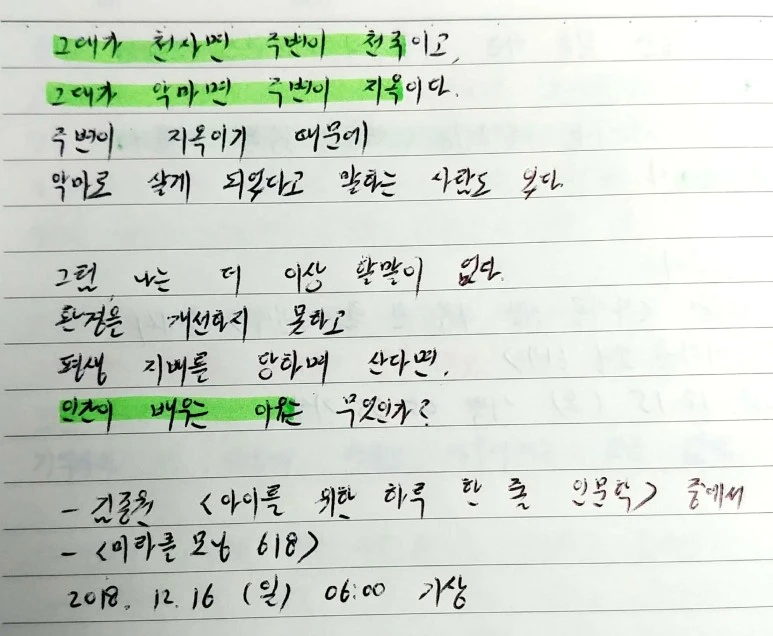 그대가 천사면 주변이 천국이고,
그대가 악마면 주변이 지옥이다.
주변이 지옥이기 때문에
악마로 살게 되었다고 말하는 사람도 있다.
그럼, 나는 더 이상 할말이 없다.
환경을 개선하지 못하고
평생 지배를 당하며 산다면,
인간이 배우는 이유는 무엇인가?
- 김종원 <아이를 위한 하루 한 줄 인문학> 중에서
- <미라클모닝 618>
2018. 12. 16 (일) 06:00 기상